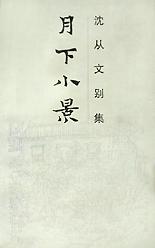 沈从文别集
月下小景